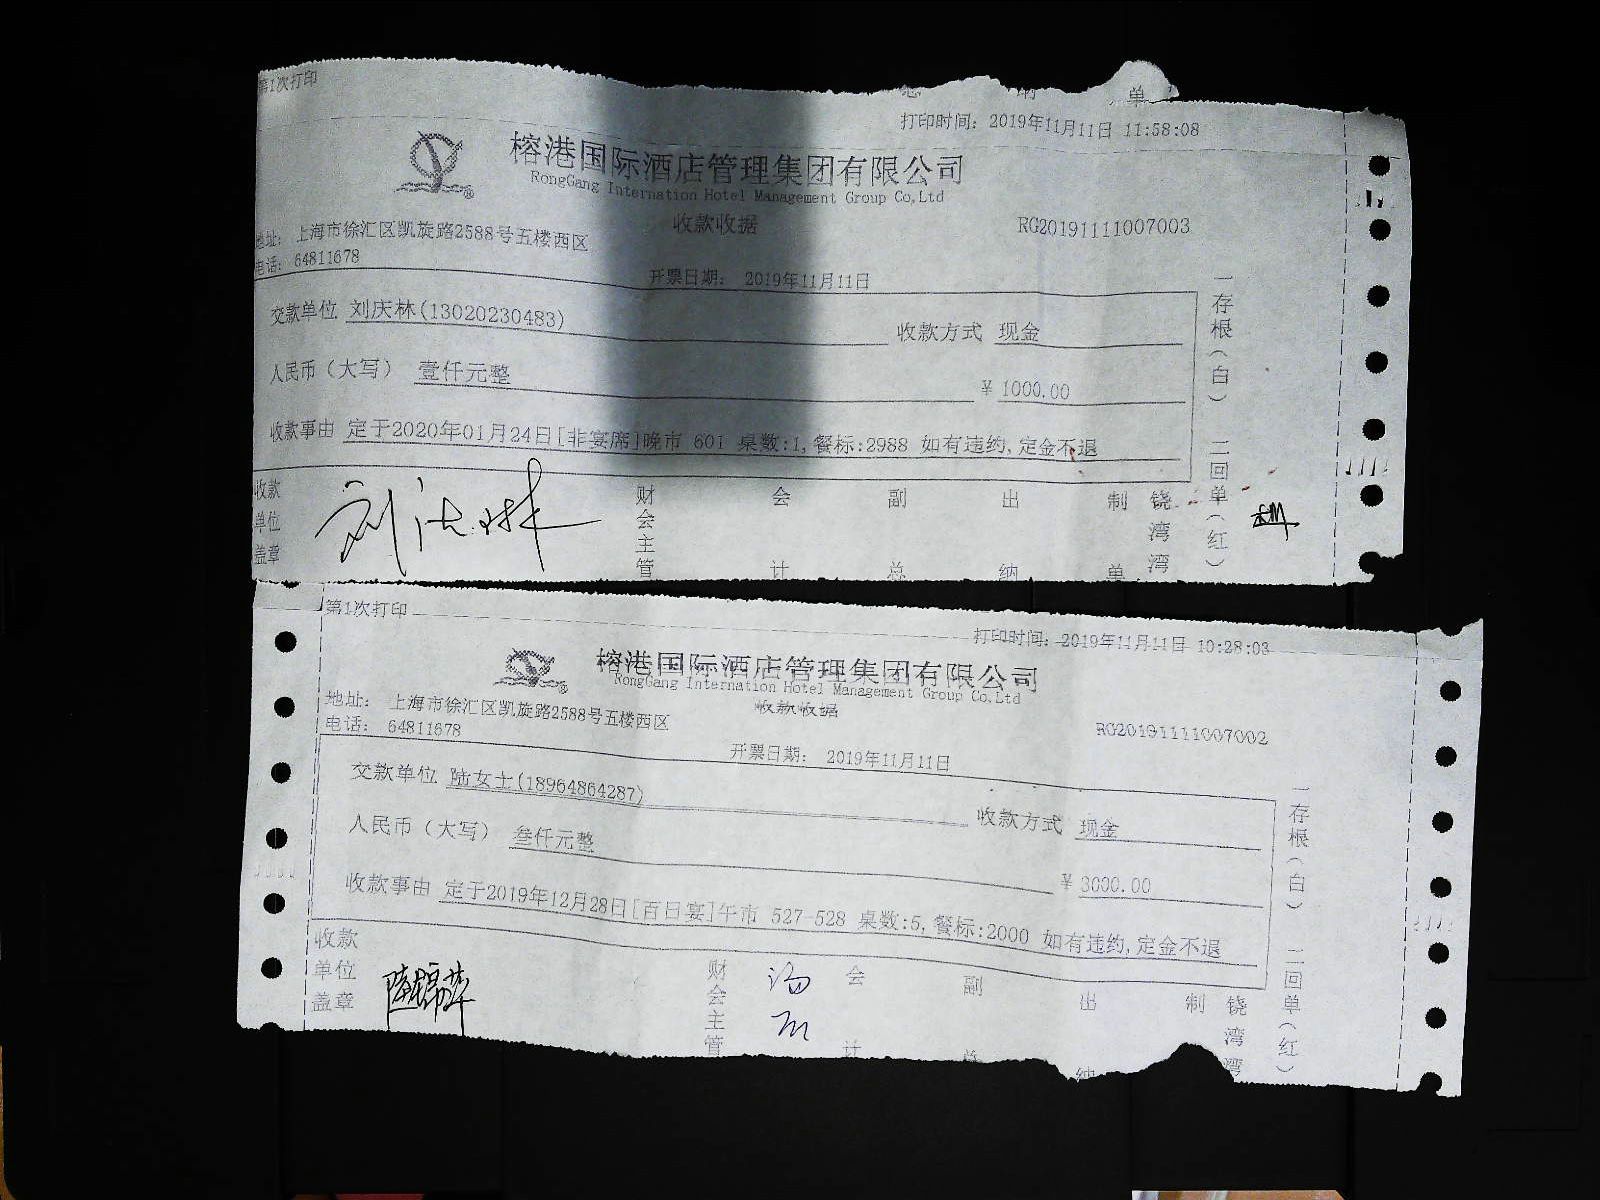 第1次打印
总 纳 单
打印时间: 2019年11月11日 11:58:08
榕港国际酒店管理集团有限公司
RongGang Internation Hotel Management Group Co,Ltd
收款收据
RG20191111007003
地址: 上海市徐汇区凯旋路2588号五楼西区
电话: 64811678
开票日期: 2019年11月11日
交款单位 刘庆林(13020230483)
收款方式 现金
人民币(大写) 壹仟元整
¥ 1000.00
收款事由 定于2020年01月24日[非宴席]晚市 601 桌数:1,餐标:2988 如有违约,定金不退
一存根(白) 二回单(红)
收款单位盖章
刘庆林
财会主管 会计 副总 出纳 制单 饶湾湾
第1次打印
打印时间: 2019年11月11日 10:28:03
榕港国际酒店管理集团有限公司
RongGang Internation Hotel Management Group Co,Ltd
收款收据
RG20191111007002
地址: 上海市徐汇区凯旋路2588号五楼西区
电话: 64811678
开票日期: 2019年11月11日
交款单位 陆女士(18964864287)
收款方式 现金
人民币(大写) 叁仟元整
¥ 3000.00
收款事由 定于2019年12月28日[百日宴]午市 527-528 桌数:5,餐标:2000 如有违约,定金不退
一存根(白) 二回单(红)
收款单位盖章
财会主管 会计 副总 出纳 制 饶湾湾